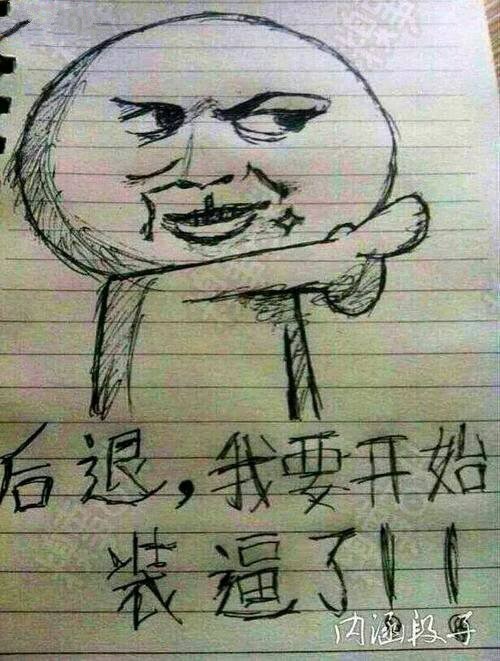 后退,我要开始
装逼了!!
内涵段子